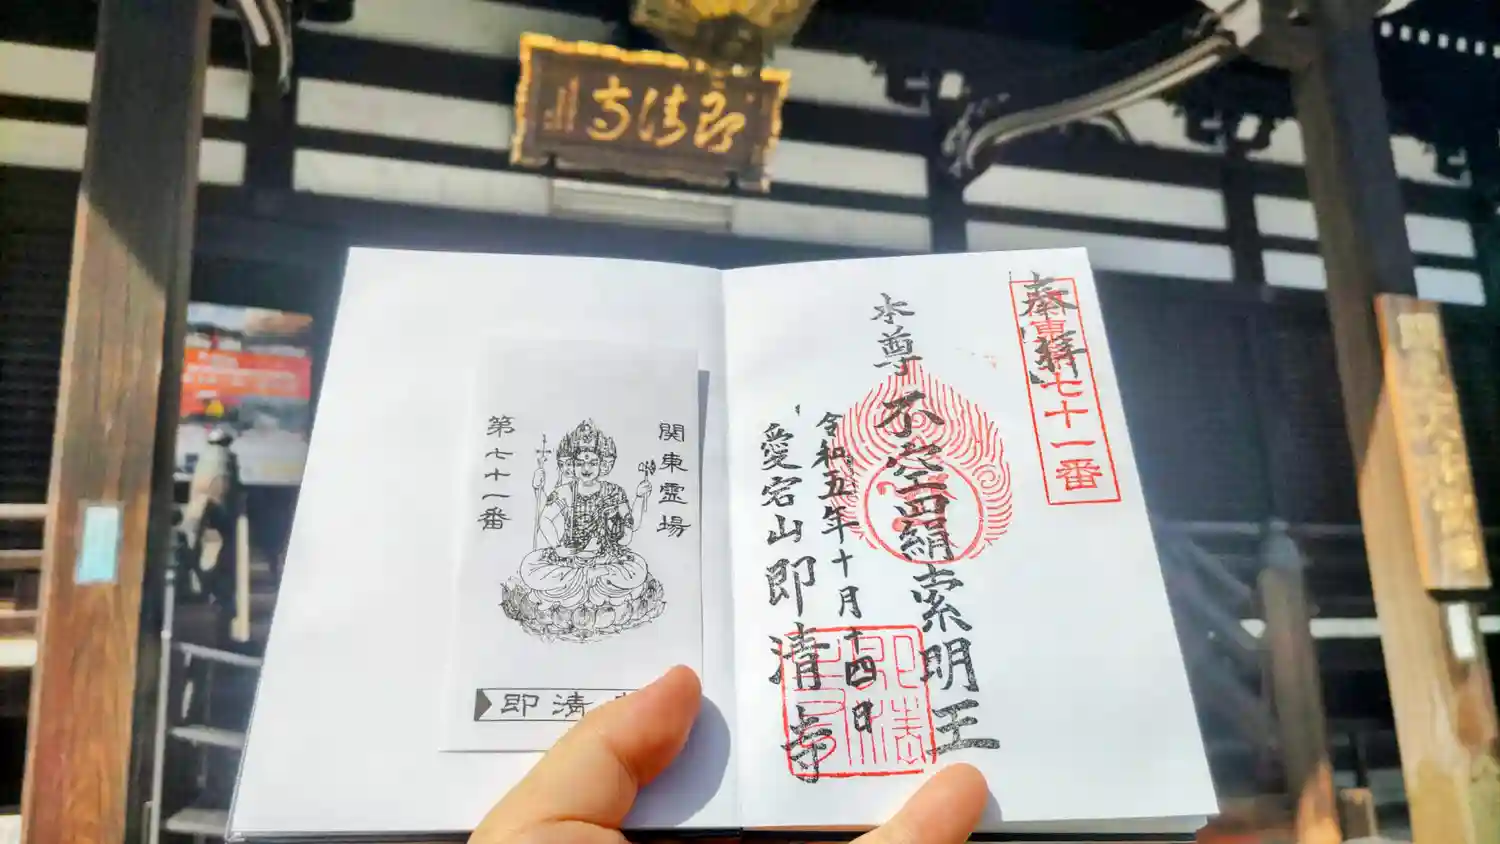 即清寺
奉拝
七十一番
本尊
不空羂索明王
令和五年十月十四日
愛宕山即清寺
関東霊場
第七十一番
即清